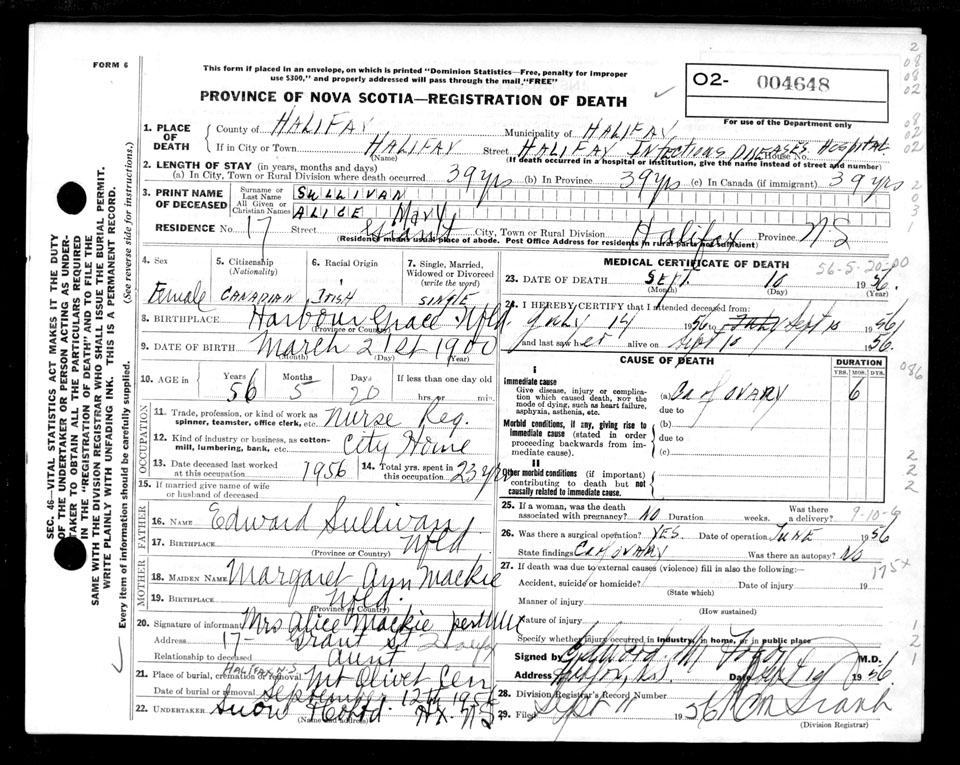 FORM 6
This form if placed in an envelope, on which is printed "Dominion Statistics—Free, penalty for improper
use $300," and properly addressed will pass through the mail, "FREE"
PROVINCE OF NOVA SCOTIA—REGISTRATION OF DEATH
O2- 004648
For use of the Department only
SEC. 46—VITAL STATISTICS ACT MAKES IT THE DUTY
OF THE UNDERTAKER OR PERSON ACTING AS UNDER-
TAKER TO OBTAIN ALL THE PARTICULARS REQUIRED
IN THE "REGISTRATION OF DEATH" AND TO FILE THE
SAME WITH THE DIVISION REGISTRAR WHO SHALL ISSUE THE BURIAL PERMIT.
WRITE PLAINLY WITH UNFADING INK. THIS IS A PERMANENT RECORD.
Every item of information should be carefully supplied. (See reverse side for instructions.)
1. PLACE OF DEATH
County of HALIFAX Municipality of HALIFAX
If in City or Town HALIFAX Street HALIFAX INFECTIOUS DISEASES HOSPITAL House No.
(Name) (If death occurred in a hospital or institution, give the name instead of street and number)
2. LENGTH OF STAY (in years, months and days)
(a) In City, Town or Rural Division where death occurred 39 yrs (b) In Province 39 yrs (c) In Canada (if immigrant) 39 yrs
3. PRINT NAME OF DECEASED
Surname or Last Name SULLIVAN
All Given or Christian Names ALICE Mary
RESIDENCE No. 17 Street Grant City, Town or Rural Division Halifax Province N.S
(Residence means usual place of abode. Post Office Address for residents in rural parts not sufficient)
4. Sex Female
5. Citizenship (Nationality) CANADIAN
6. Racial Origin Irish
7. Single, Married, Widowed or Divorced (write the word) SINGLE
8. BIRTHPLACE Harbour Grace Nfld.
(Province or Country)
9. DATE OF BIRTH March 21st 1900
(Month) (Day) (Year)
10. AGE in Years 56 Months 5 Days 20 If less than one day old hrs. or min.
OCCUPATION
11. Trade, profession, or kind of work as spinner, teamster, office clerk, etc. Nurse Reg.
12. Kind of industry or business, as cotton-mill, lumbering, bank, etc. City Home
13. Date deceased last worked at this occupation 1956 14. Total yrs. spent in this occupation 23 yrs
15. If married give name of wife or husband of deceased
FATHER
16. NAME Edward Sullivan
17. BIRTHPLACE Nfld
(Province or Country)
MOTHER
18. MAIDEN NAME Margaret Ann Mackie
19. BIRTHPLACE Nfld.
(Province or Country)
20. Signature of informant Mrs Alice Mackie
Address 17 - Grant St
Relationship to deceased aunt
21. Place of burial, cremation or removal HALIFAX N.S Mt Olivet Cem
Date of burial or removal September 12th 1956
22. UNDERTAKER Snow Hx. NS
(Name and address)
MEDICAL CERTIFICATE OF DEATH 56-5-20-00
23. DATE OF DEATH SEPT. 10 1956.
(Month) (Day) (Year)
24. I HEREBY CERTIFY that I attended deceased from:
July 14 1956 to July Sept 10 1956
and last saw her alive on Sept 10 1956.
CAUSE OF DEATH DURATION
YRS. MOS. DYS.
I
Immediate cause
Give disease, injury or complication which caused death, NOT the mode of dying, such as heart failure, asphyxia, asthenia, etc.
(a) Ca of OVARY 6
due to
Morbid conditions, if any, giving rise to immediate cause (stated in order proceeding backwards from immediate cause).
(b)
due to
(c)
II
Other morbid conditions (if important) contributing to death but not causally related to immediate cause.
25. If a woman, was the death associated with pregnancy? NO Duration weeks. Was there a delivery?
26. Was there a surgical operation? YES. Date of operation JUNE 1956
State findings Ca OF OVARY Was there an autopsy? No
27. If death was due to external causes (violence) fill in also the following:—
Accident, suicide or homicide? Date of injury 19
(State which)
Manner of injury
(How sustained)
Nature of injury
Specify whether injury occurred in industry, in home, or in public place
Signed by Edward M. M.D.
Address Halifax, N.S. Date Sept 10 1956
28. Division Registrar's Record Number
29. Filed Sept 11 1956
(Division Registrar)
086
175x